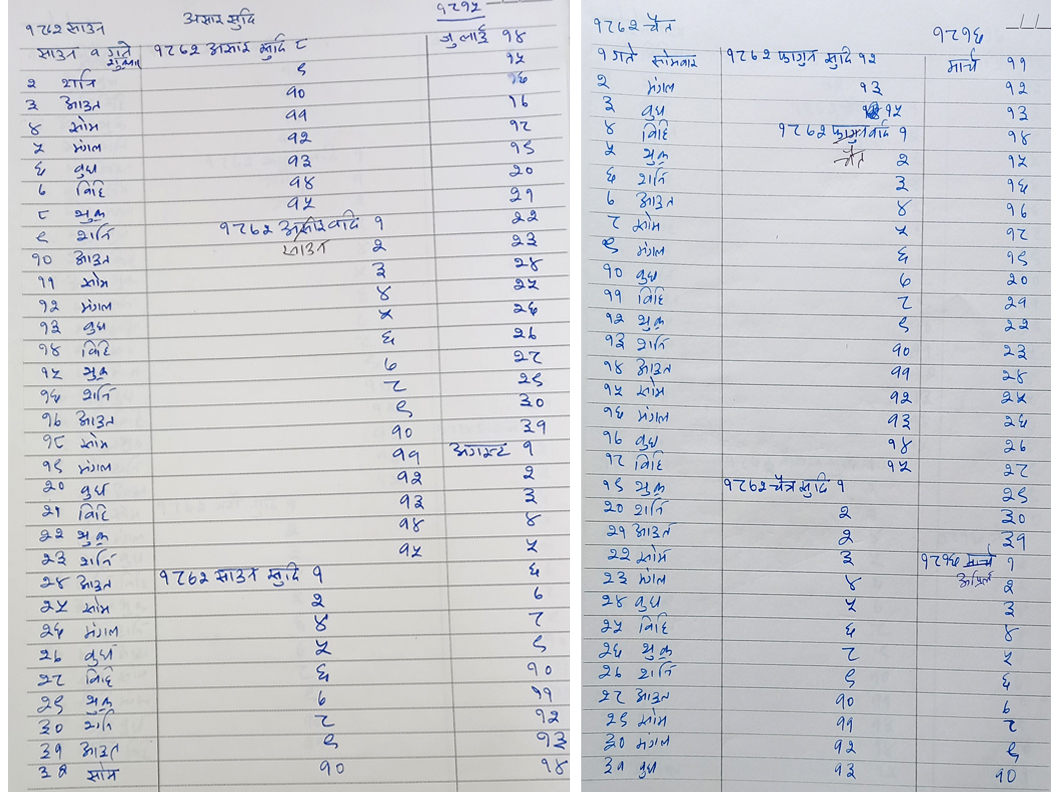 १८७२ साउन असार सुदि १८१५
साउन १ गते शुक्रवार १८७२ असार सुदि ८ जुलाई १४
२ शनि ९ १५
३ आइत १० १६
४ सोम ११ १७
५ मंगल १२ १८
६ बुध १३ १९
७ बिहि १४ २०
८ शुक्र १५ २१
९ शनि १८७२ असार वदि १ २२
साउन
१० आइत २ २३
११ सोम ३ २४
१२ मंगल ४ २५
१३ बुध ५ २६
१४ बिहि ६ २७
१५ शुक्र ७ २८
१६ शनि ८ २९
१७ आइत ९ ३०
१८ सोम १० ३१
१९ मंगल ११ अगस्ट १
२० बुध १२ २
२१ बिहि १३ ३
२२ शुक्र १४ ४
२३ शनि १५ ५
२४ आइत १८७२ साउन सुदि १ ६
२५ सोम २ ७
२६ मंगल ४ ८
२७ बुध ५ ९
२८ बिहि ६ १०
२९ शुक्र ७ ११
३० शनि ८ १२
३१ आइत ९ १३
३२ सोम १० १४
१८७२ चैत १८१६
१ गते सोमवार १८७२ फागुन सुदि १२ मार्च ११
२ मंगल १३ १२
३ बुध १५ १३
४ बिहि १८७२ फागुन वदि १ १४
५ शुक्र चैत २ १५
६ शनि ३ १६
७ आइत ४ १७
८ सोम ५ १८
९ मंगल ६ १९
१० बुध ७ २०
११ बिहि ८ २१
१२ शुक्र ९ २२
१३ शनि १० २३
१४ आइत ११ २४
१५ सोम १२ २५
१६ मंगल १३ २६
१७ बुध १४ २७
१८ बिहि १५ २८
१९ शुक्र १८७२ चैत्र सुदि १ २९
२० शनि २ ३०
२१ आइत २ ३१
२२ सोम ३ १८१६ मार्च १
अप्रिल
२३ मंगल ४ २
२४ बुध ५ ३
२५ बिहि ६ ४
२६ शुक्र ८ ५
२७ शनि ९ ६
२८ आइत १० ७
२९ सोम ११ ८
३० मंगल १२ ९
३१ बुध १३ १०